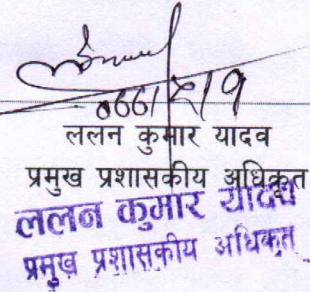 ललन कुमार यादव
प्रमुख प्रशासकीय अधिकृत
ललन कुमार यादव
प्रमुख प्रशासकीय अधिकृत